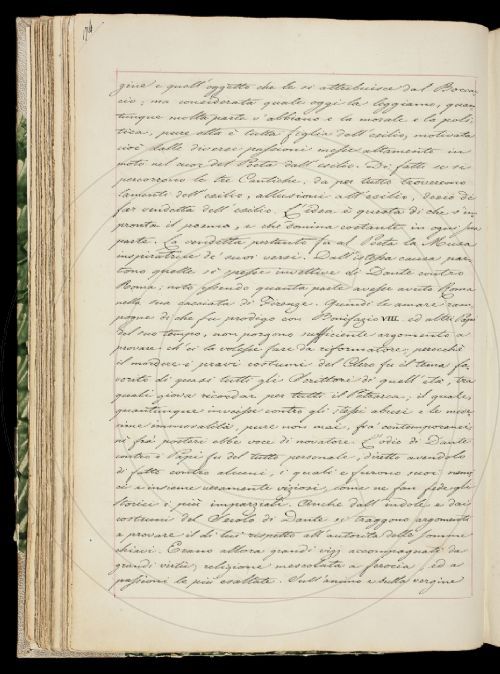 gine e quell'oggetto che le si attribuisce dal Bocca
cio; ma considerata quale oggi la leggiamo, quan
tunque molta parte v'abbiano e la morale e la poli
tica, pure ella è tutta figlia dell'esilio, motivata
cioè dalle diverse passioni messe altamente in
moto nel cuor del Poeta dall'esilio. Di fatti se si
percorrono le tre Cantiche, da per tutto troveremo
lamenti dell'esilio, allusioni all'esilio, desio di
far vendetta dell'esilio. L'idea è questa di che s'im
pronta il poema, e che domina costante in ogni sua
parte. La vendetta pertanto fu al Poeta la Musa
inspiratrice de' suoi versi. Dall'istessa causa par
tono quelle sì spesse invettive di Dante contro
Roma; noto essendo quanta parte avesse avuto Roma
nella sua cacciata di Firenze. Quindi le amare ram
pogne di che fu prodigo con Bonifazio VIII. ed altri Papi
del suo tempo, non porgono sufficiente argomento a
provare ch'ei la volesse fare da riformatore; perocchè
il mordere i pravi costumi del Clero fu il tema fa
vorito di quasi tutti gli Scrittori di quell'età, tra
quali giova ricordar per tutti il Petrarca, il quale,
quantunque inveisse contro gli stessi abusi e le mede
sime immoralità, pure non mai, fra' contemporanei
nè fra' posteri ebbe voce di novatore. L'odio di Dante
contro i Papi fu del tutto personale, diretto avendolo
di fatto contro alcuni, i quali e furono suoi nemi
ci e insieme veramente viziosi, come ne fan fede gli
storici i più imparziali. Anche dall'indole e dai
costumi del Secolo di Dante si traggono argomenti
a provare il di lui rispetto all'autorità delle somme
chiavi. Erano allora grandi vizj accompagnati da
grandi virtù; religione mescolata a ferocia, ed a
passioni le più esaltate. Sull'animo e sulla vergine